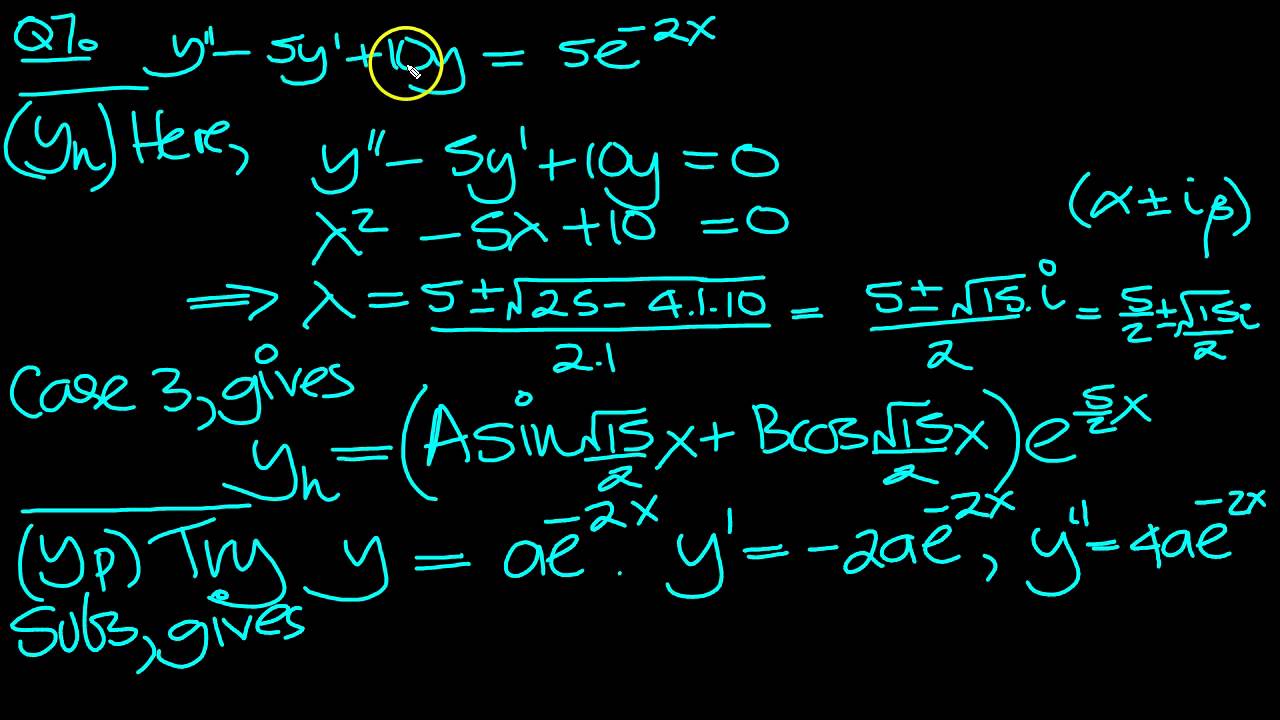 Q7. y'' - 5y' + 10y = 5e^{-2x}
(y_h) Here,
y'' - 5y' + 10y = 0
λ² - 5λ + 10 = 0
(α ± iβ)
⟹ λ = \frac{5 ± √(25 - 4.1.10)}{2.1} = \frac{5 ± √15.i}{2} = \frac{5}{2} ± \frac{√15 i}{2}
Case 3, gives
y_h = (A sin \frac{√15}{2} x + B cos \frac{√15}{2} x) e^{\frac{5}{2}x}
(y_p) Try y = ae^{-2x}. y' = -2ae^{-2x}, y'' = 4ae^{-2x}
Subs, gives